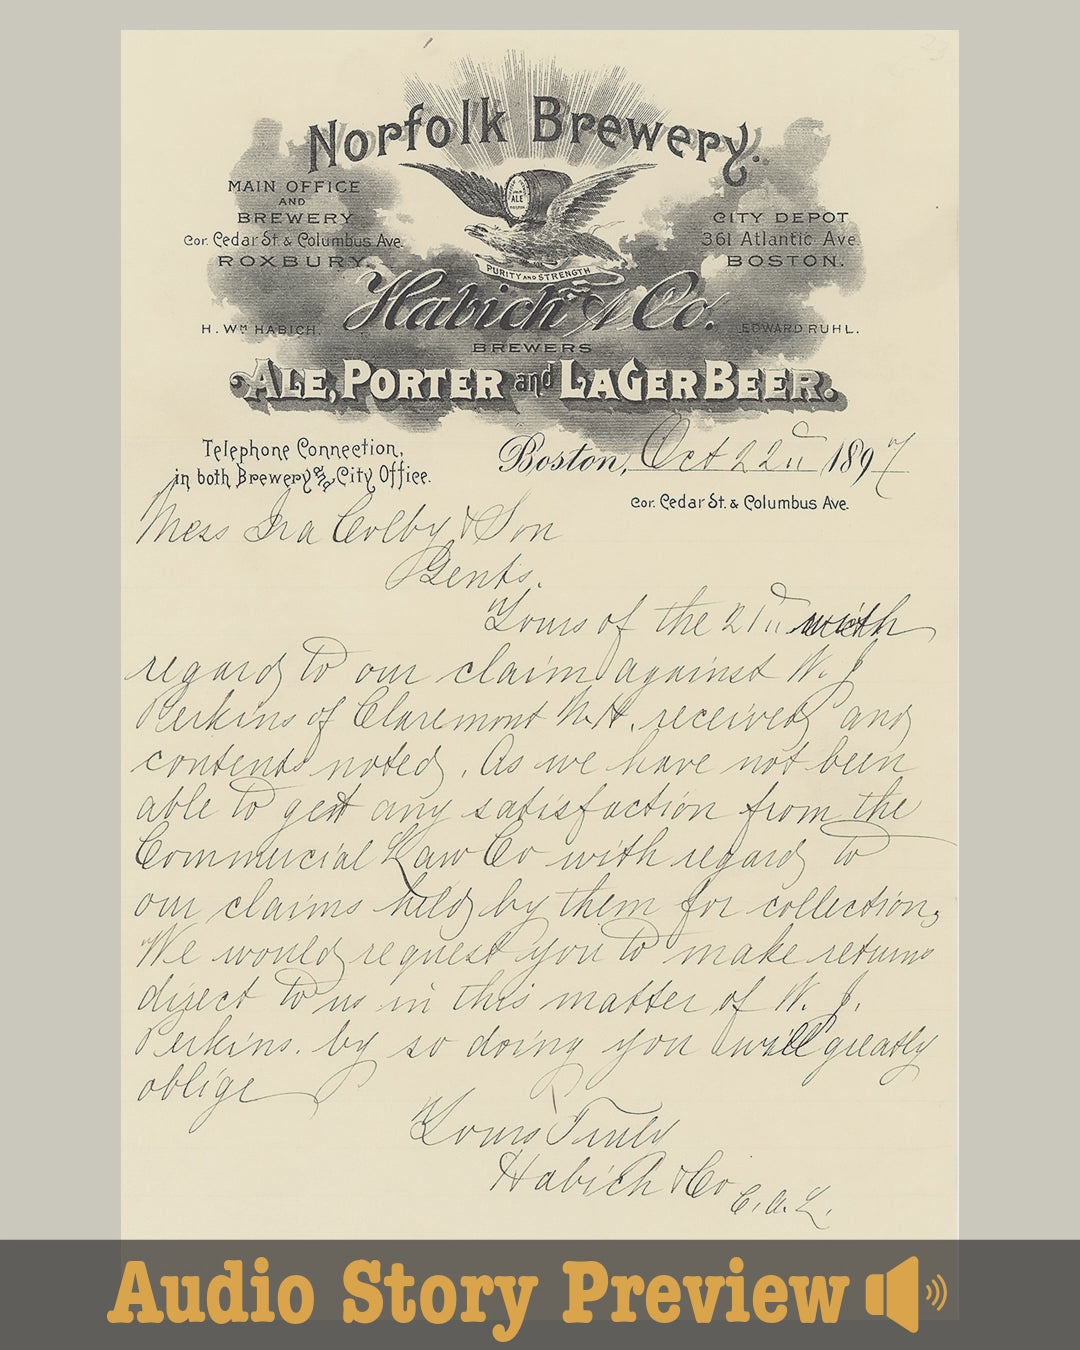 Norfolk Brewery.
MAIN OFFICE
AND
BREWERY
Cor. Cedar St. & Columbus Ave.
ROXBURY.
ALE
CITY DEPOT
361 Atlantic Ave.
BOSTON.
PURITY AND STRENGTH
Habich & Co.
H. WM HABICH.
EDWARD RUHL.
BREWERS
ALE, PORTER and LAGER BEER.
Telephone Connection,
in both Brewery and City Office.
Boston, Oct 22d 1897
Cor. Cedar St. & Columbus Ave.
Mess Ira Colby & Son
Gents.
Yours of the 21d with
regard to our claim against W. J
Perkins of Claremont N.H. received and
contents noted. As we have not been
able to get any satisfaction from the
Commercial Law Co with regard to
our claims held by them for collection,
We would request you to make returns
direct to us in this matter of W. J.
Perkins. by so doing you will greatly
oblige
Yours Truly
Habich & Co
C. A. L.
Audio Story Preview